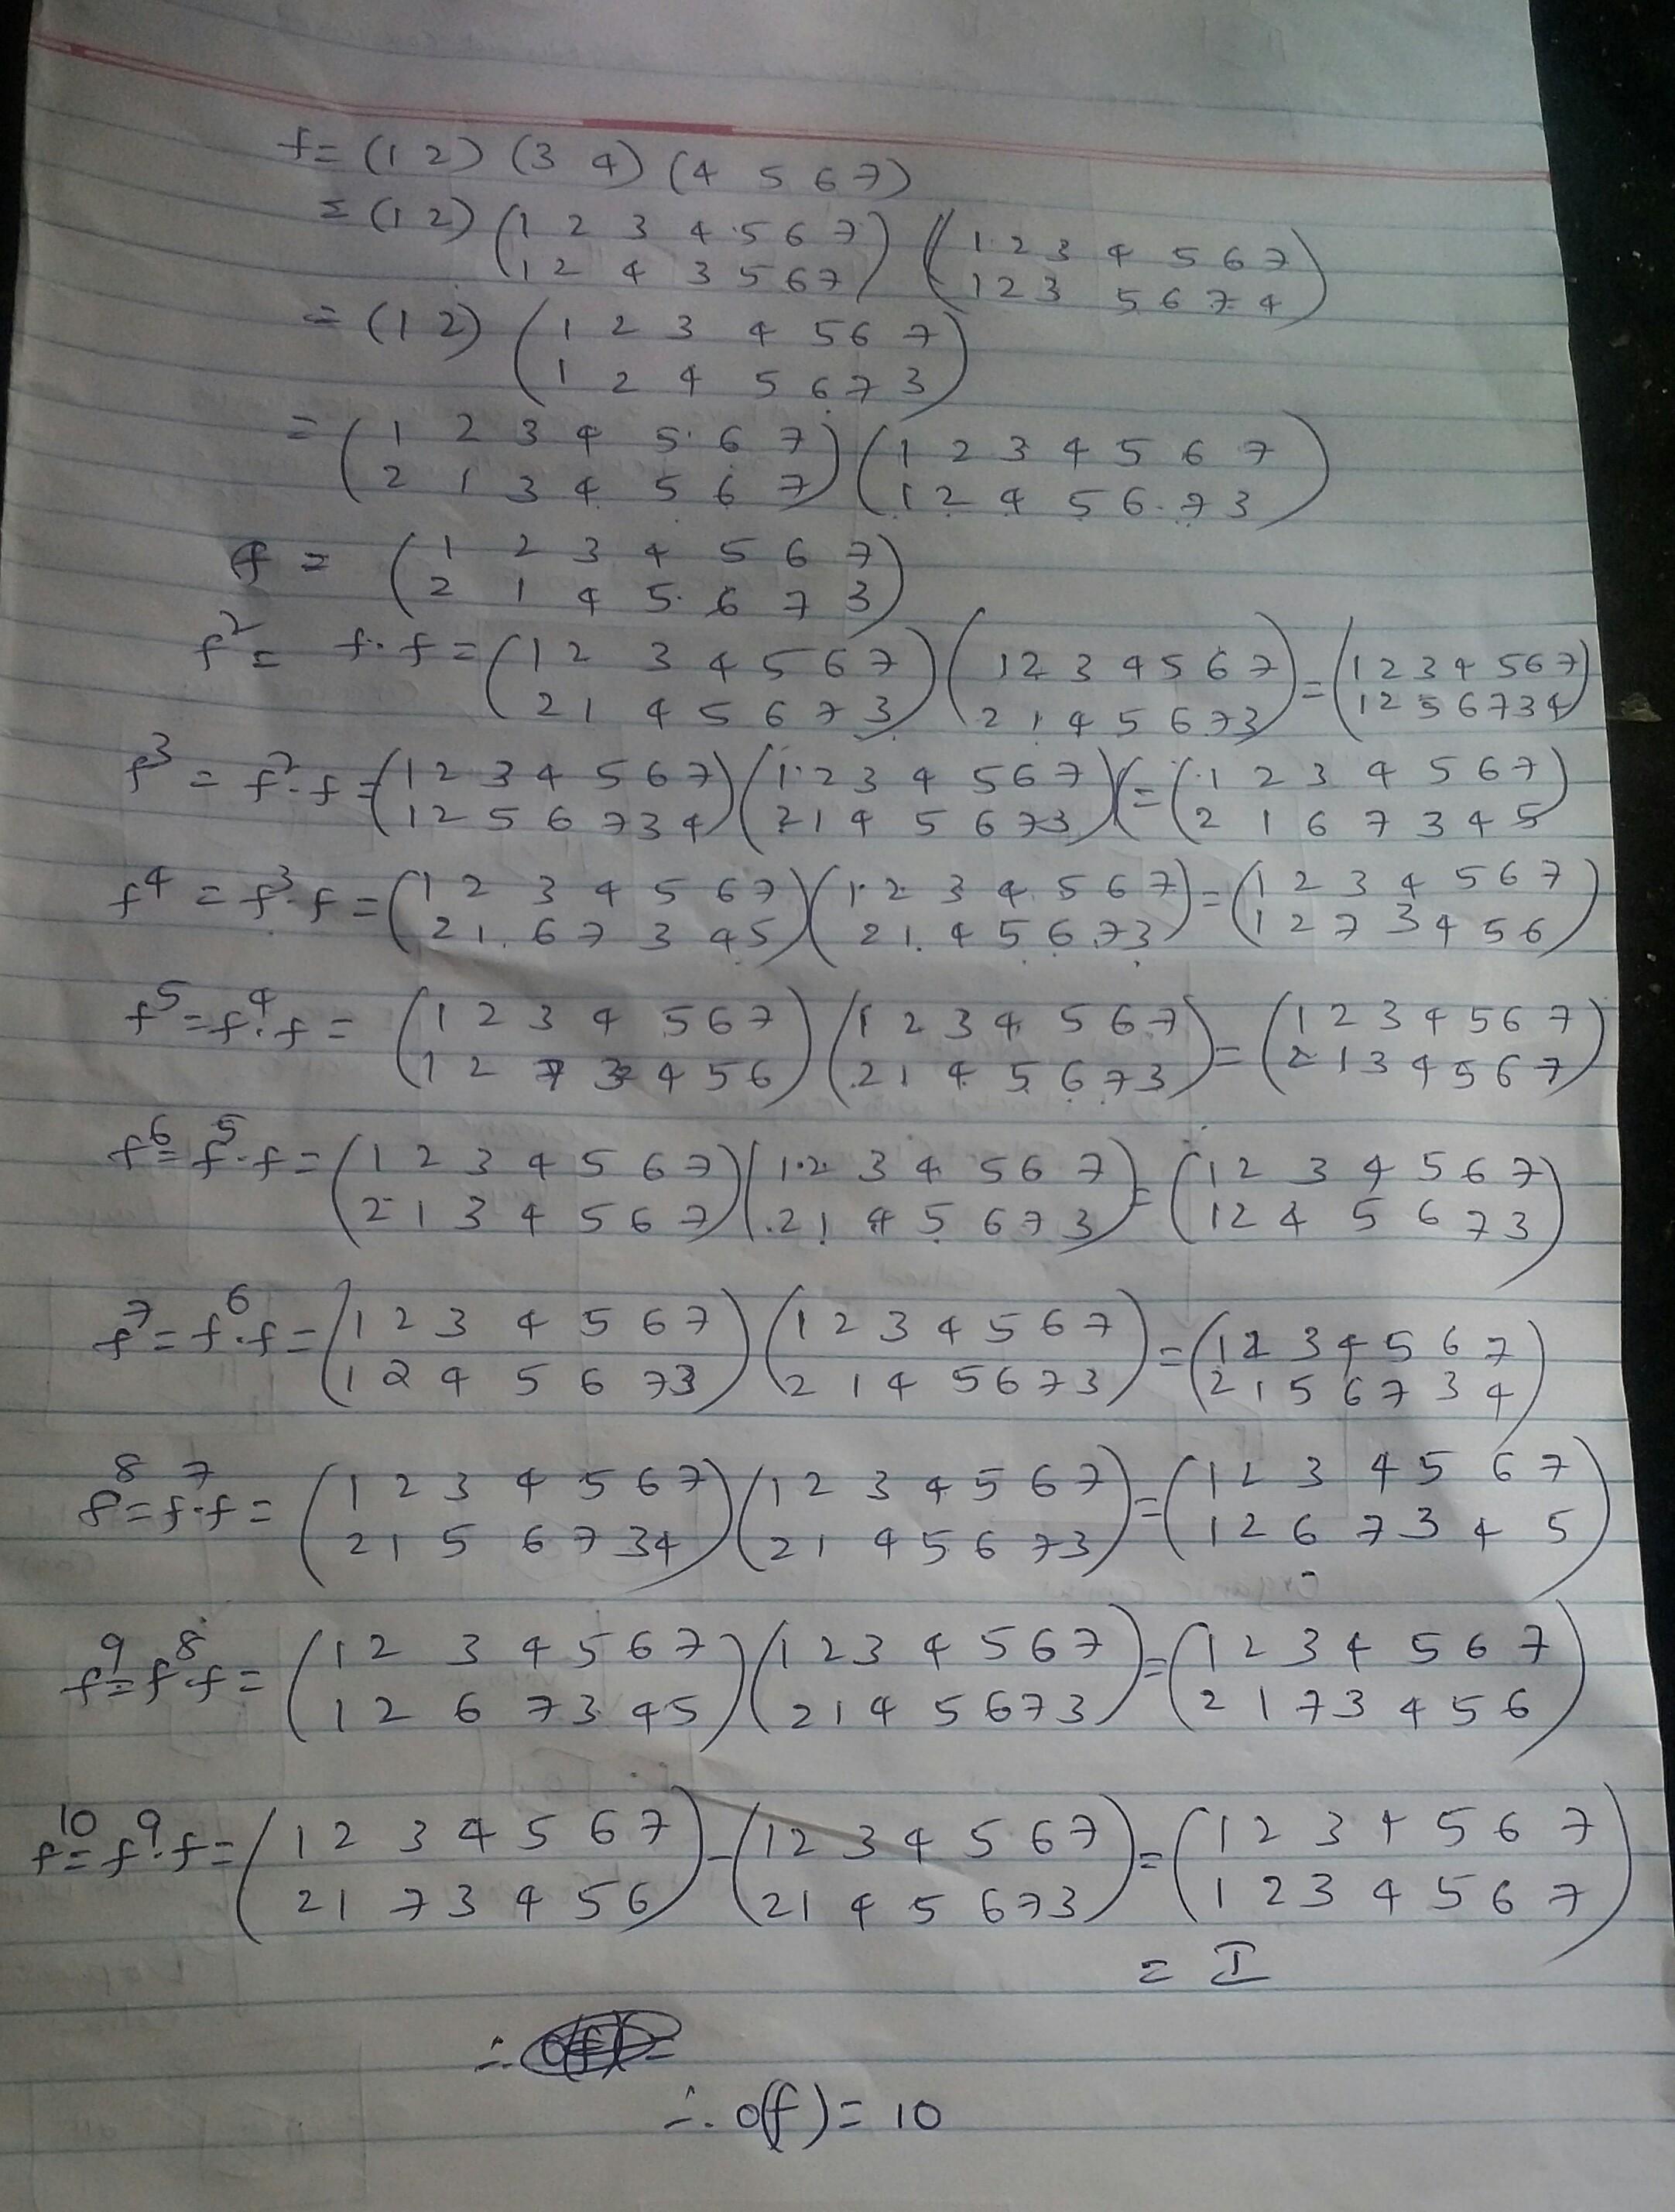 f = (1 2) (3 4) (4 5 6 7)
= (1 2) (1 2 3 4 5 6 7) (1 2 3 4 5 6 7)
(1 2 4 3 5 6 7) (1 2 3 5 6 7 4)
= (1 2) (1 2 3 4 5 6 7)
(1 2 4 5 6 7 3)
= (1 2 3 4 5 6 7) (1 2 3 4 5 6 7)
(2 1 3 4 5 6 7) (1 2 4 5 6 7 3)
f = (1 2 3 4 5 6 7)
(2 1 4 5 6 7 3)
f² = f · f = (1 2 3 4 5 6 7) (1 2 3 4 5 6 7) = (1 2 3 4 5 6 7)
(2 1 4 5 6 7 3) (2 1 4 5 6 7 3) (1 2 5 6 7 3 4)
f³ = f² · f = (1 2 3 4 5 6 7) (1 2 3 4 5 6 7) = (1 2 3 4 5 6 7)
(1 2 5 6 7 3 4) (2 1 4 5 6 7 3) (2 1 6 7 3 4 5)
f⁴ = f³ · f = (1 2 3 4 5 6 7) (1 2 3 4 5 6 7) = (1 2 3 4 5 6 7)
(2 1 6 7 3 4 5) (2 1 4 5 6 7 3) (1 2 7 3 4 5 6)
f⁵ = f⁴ · f = (1 2 3 4 5 6 7) (1 2 3 4 5 6 7) = (1 2 3 4 5 6 7)
(1 2 7 3 4 5 6) (2 1 4 5 6 7 3) (2 1 3 4 5 6 7)
f⁶ = f⁵ · f = (1 2 3 4 5 6 7) (1 2 3 4 5 6 7) = (1 2 3 4 5 6 7)
(2 1 3 4 5 6 7) (2 1 4 5 6 7 3) (1 2 4 5 6 7 3)
f⁷ = f⁶ · f = (1 2 3 4 5 6 7) (1 2 3 4 5 6 7) = (1 2 3 4 5 6 7)
(1 2 4 5 6 7 3) (2 1 4 5 6 7 3) (2 1 5 6 7 3 4)
f⁸ = f⁷ · f = (1 2 3 4 5 6 7) (1 2 3 4 5 6 7) = (1 2 3 4 5 6 7)
(2 1 5 6 7 3 4) (2 1 4 5 6 7 3) (1 2 6 7 3 4 5)
f⁹ = f⁸ · f = (1 2 3 4 5 6 7) (1 2 3 4 5 6 7) = (1 2 3 4 5 6 7)
(1 2 6 7 3 4 5) (2 1 4 5 6 7 3) (2 1 7 3 4 5 6)
f¹⁰ = f⁹ · f = (1 2 3 4 5 6 7) - (1 2 3 4 5 6 7) = (1 2 3 4 5 6 7)
(2 1 7 3 4 5 6) (2 1 4 5 6 7 3) (1 2 3 4 5 6 7)
= I
∴ o(f) =
∴ o(f) = 10